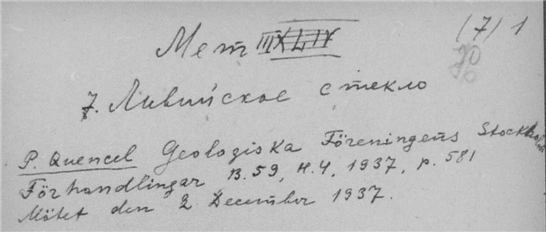 (7) 1
Мет III
7. Ливийское стекло
P. Quencel Geologiska Föreningens Stockholm
Förhandlingar B. 59, H. 4, 1937, p. 581
Mötet den 2 December 1937.